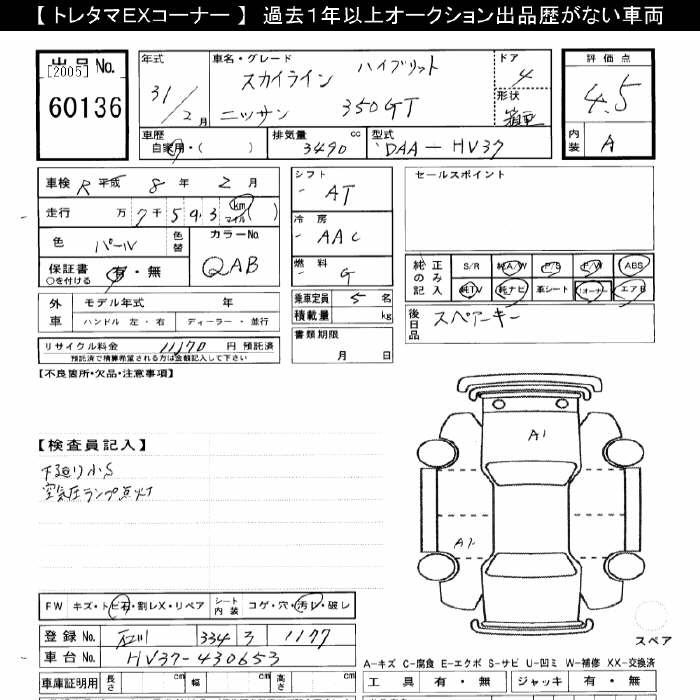 【 トレタマEXコーナー 】 過去1年以上オークション出品歴がない車両
出品 No.
[2005]
60136
年式 31/2月
車名・グレード
スカイライン ハイブリット
ニッサン 350GT
ドア 4
形状 箱型
評価点
4.5
内装 A
車歴 自家用・( )
排気量 3490 cc
型式 DAA-HV37
車検 R 平成 8年 2月
走行 万 7千 5 9 3 km マイル ( )
色 パール 色替
カラーNo. QAB
保証書 有・無
○を付ける
外車 モデル年式 年
ハンドル 左・右 ディーラー・並行
リサイクル料金 11170 円 預託済
預託済で精算希望される方は金額記入して下さい
シフト AT
冷房 AAC
燃料 G
乗車定員 5 名
積載量 kg
書類期限
月 日
セールスポイント
純正のみ記入
S/R 純A/W P/S P/W ABS
純TV 純ナビ 革シート 1オーナー エアB
後日品 スペアーキー
【不良箇所・欠品・注意事項】
【検査員記入】
下廻り小S
空気圧ランプ点灯
A1
A1
FW キズ・トビ石・割レX・リペア シート内装 コゲ・穴・汚レ・破レ
登録 No. 石川 334 ス 1177
車台 No. HV37-430653
車庫証明用 長さ cm 幅 cm 高さ cm
スペア
A-キズ C-腐食 E-エクボ S-サビ U-凹ミ W-補修 XX-交換済
工具 有・無 ジャッキ 有・無